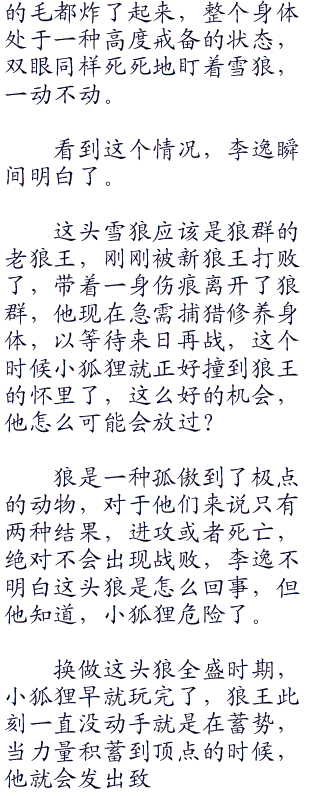 的毛都炸了起来，整个身体
处于一种高度戒备的状态，
双眼同样死死地盯着雪狼，
一动不动。
看到这个情况，李逸瞬
间明白了。
这头雪狼应该是狼群的
老狼王，刚刚被新狼王打败
了，带着一身伤痕离开了狼
群，他现在急需捕猎修养身
体，以等待来日再战，这个
时候小狐狸就正好撞到狼王
的怀里了，这么好的机会，
他怎么可能会放过？
狼是一种孤傲到了极点
的动物，对于他们来说只有
两种结果，进攻或者死亡，
绝对不会出现战败，李逸不
明白这头狼是怎么回事，但
他知道，小狐狸危险了。
换做这头狼全盛时期，
小狐狸早就玩完了，狼王此
刻一直没动手就是在蓄势，
当力量积蓄到顶点的时候，
他就会发出致